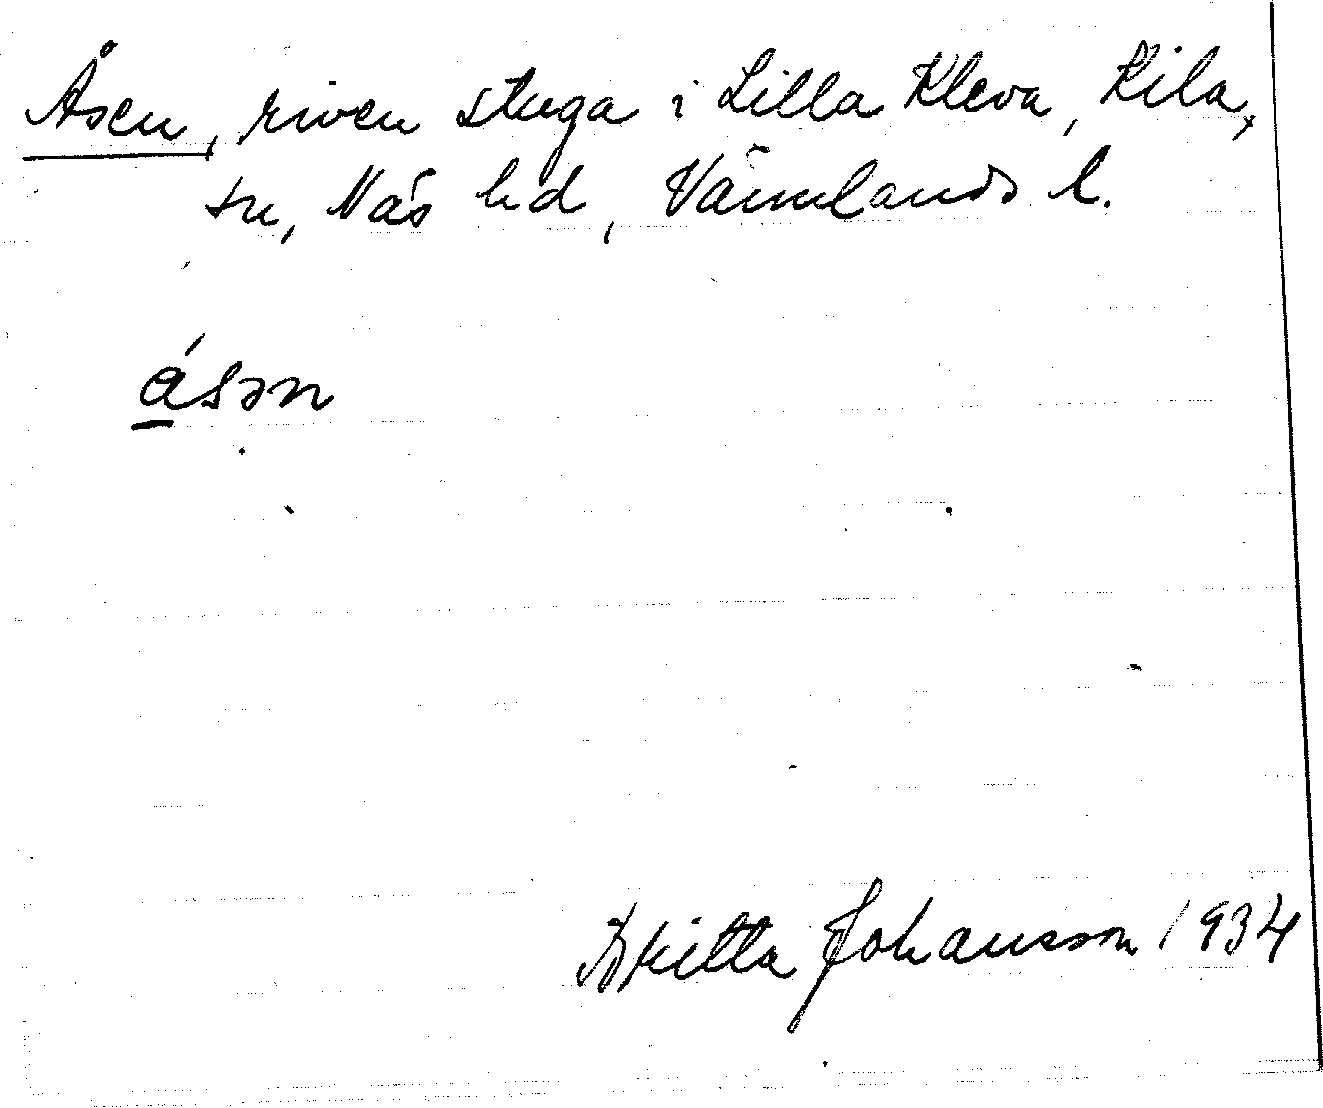 Åsen, riven stuga i Lilla Kleva, Kila,
sn, Näs hd, Värmlands l.
ásən
Britta Johansson 1934